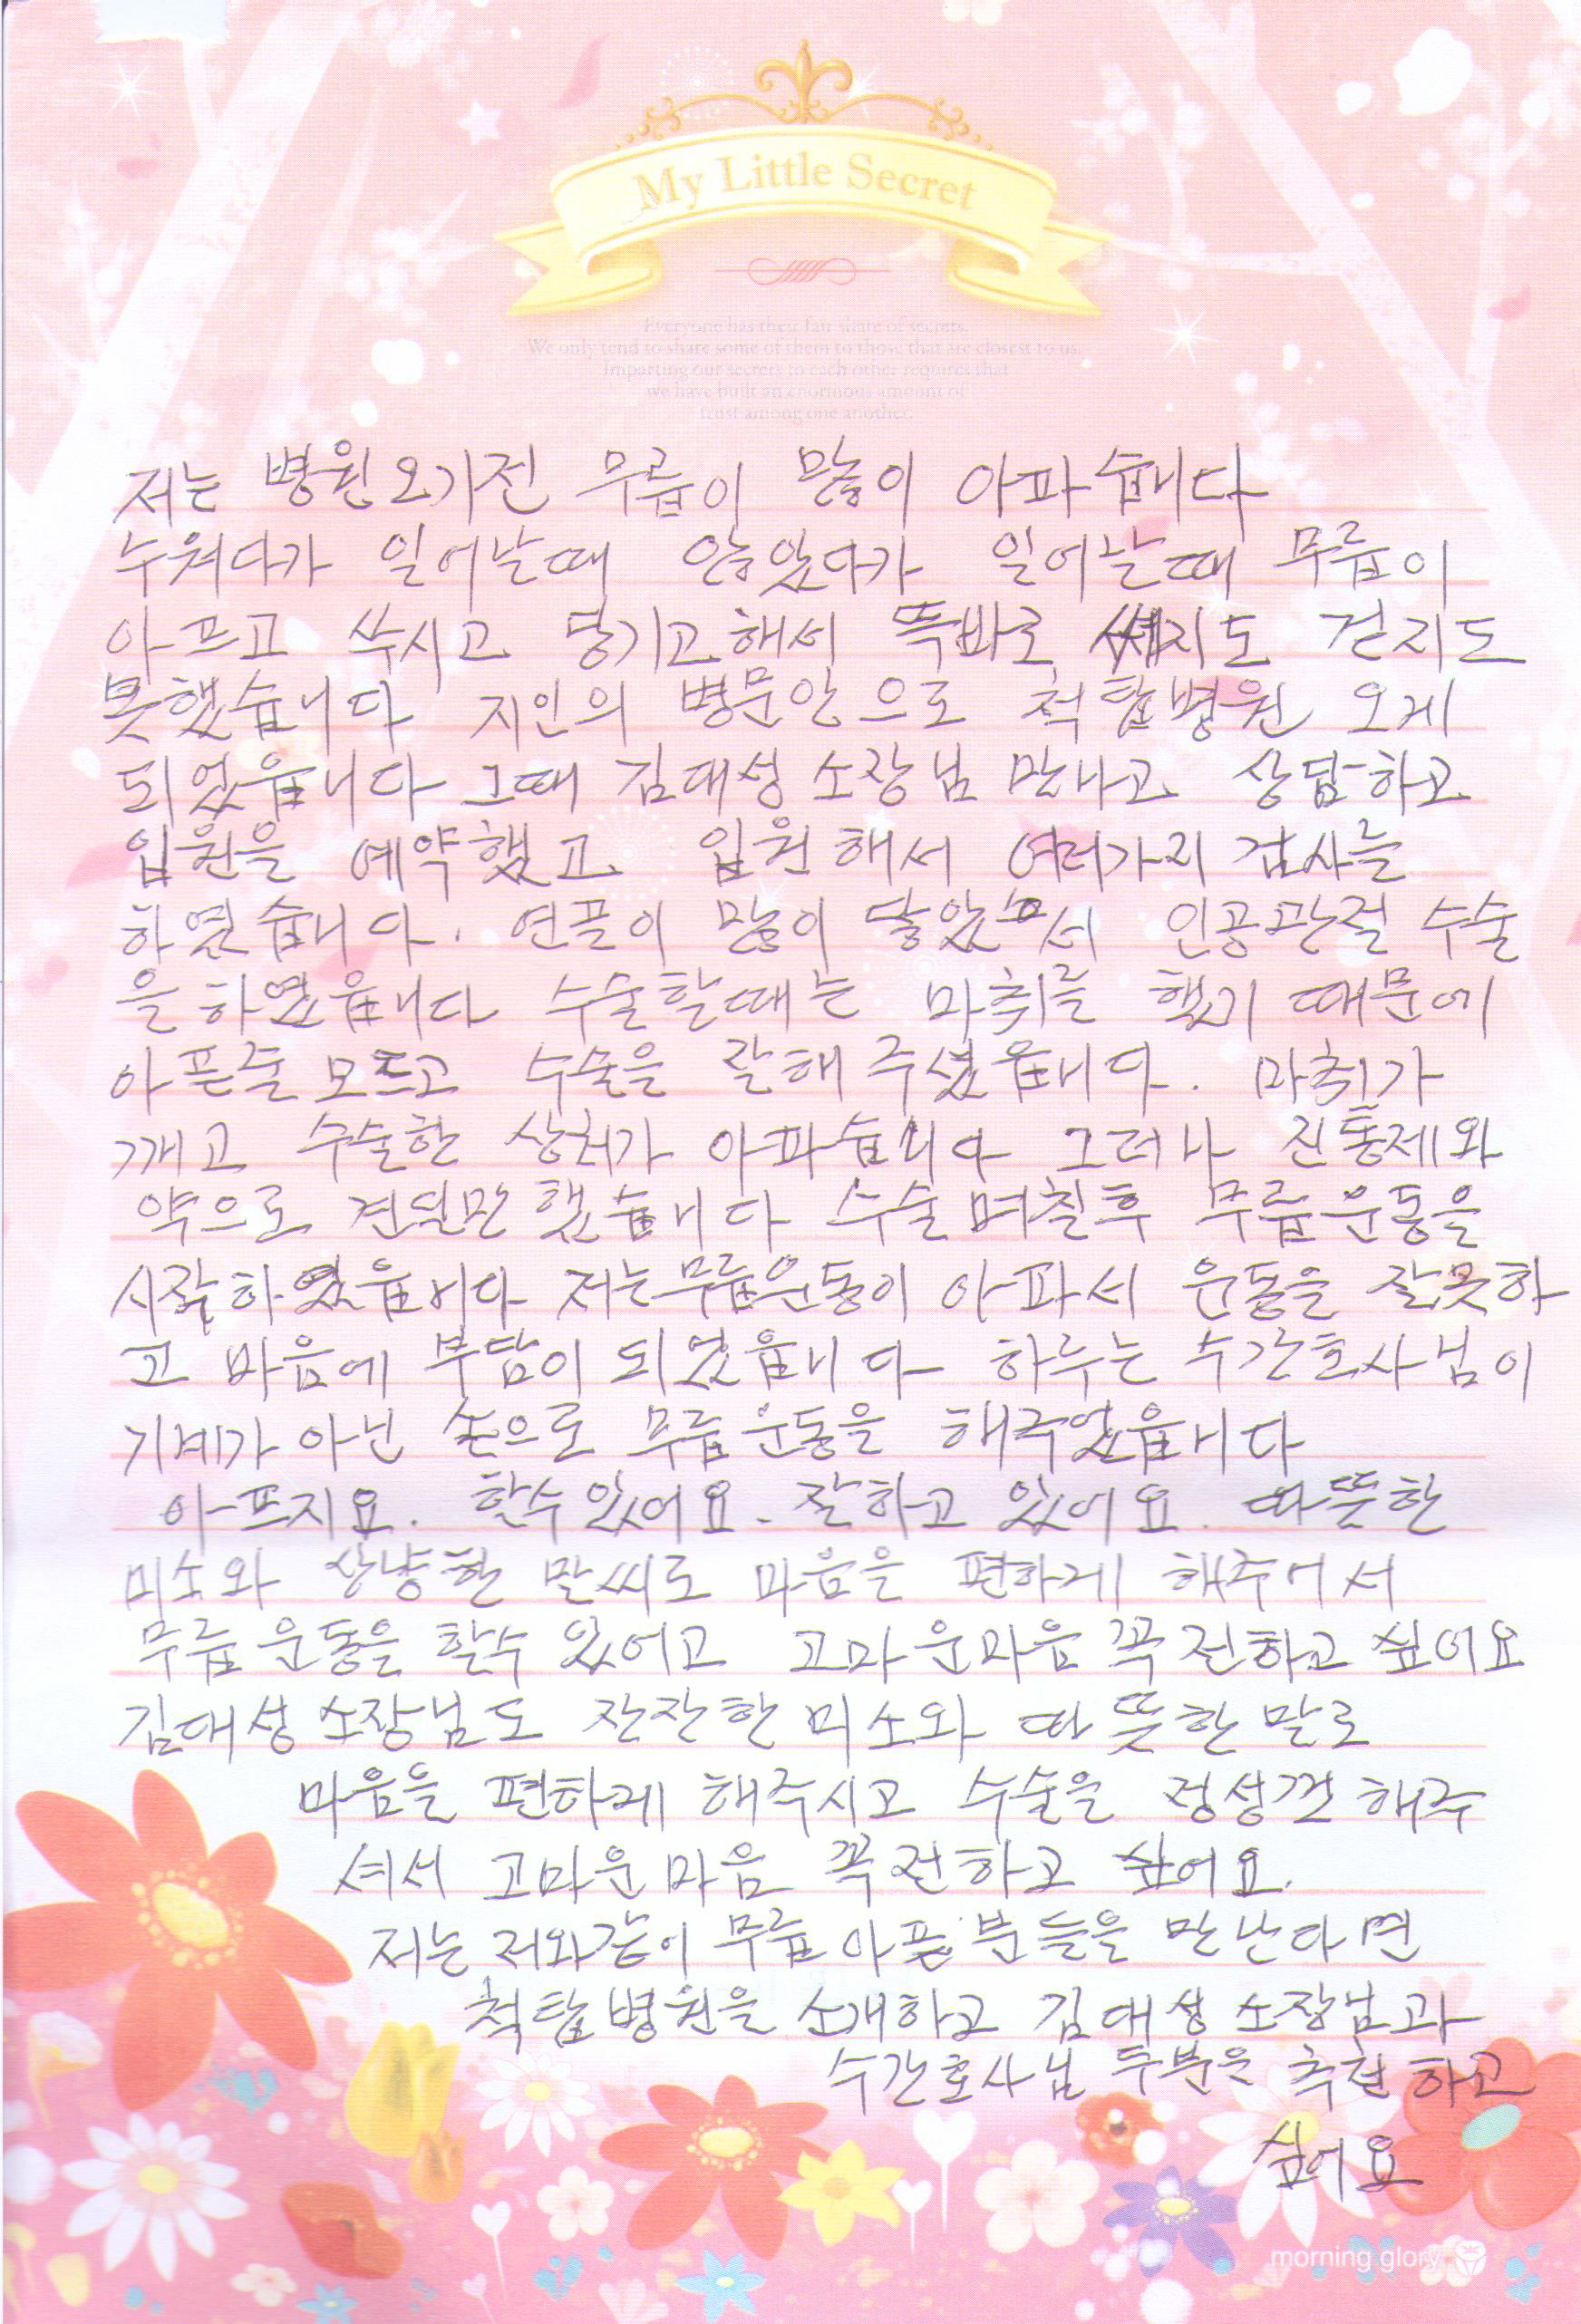 My Little Secret
Everyone has their fair share of secrets.
We only tend to share some of them to those that are closest to us.
Imparting our secrets to each other requires that
we have built an enormous amount of
trust among one another.
저는 병원오기전 무릎이 많이 아파습니다
누워다가 일어날때 않았다가 일어날때 무릎이
아프고 쑤시고 당기고해서 똑바로 지도 걷지도
못했습니다 지인의 병문안으로 척탑병원 오게
되었읍니다 그때 김대성 소장님 만나고 상담하고
입원을 예약했고 입원해서 여러가지 검사를
하였습니다. 연골이 많이 닳았 서 인공관절 수술
을 하였읍니다 수술할때는 마취를 했기 때문에
아픈줄 모르고 수술을 잘해 주셨읍니다. 마취가
깨고 수술한 상처가 아파습니다 그러나 진통제와
약으로 견딜만 했습니다 수술 며칠후 무릎운동을
시작하였읍니다 저는무릎운동이 아파서 운동을 잘못하
고 마음에 부담이 되었읍니다 하루는 수간호사님이
기계가 아닌 손으로 무릎운동을 해주었읍니다
아프지요. 할수있어요. 잘하고 있어요. 따뜻한
미소와 상냥한 말씨로 마음을 편하게 해주어서
무릎운동을 할수 있어고 고마운마음 꼭 전하고 싶어요
김대성 소장님도 잔잔한 미소와 따뜻한 말로
마음을 편하게 해주시고 수술을 정성껏 해주
셔서 고마운 마음 꼭 전하고 싶어요.
저는 저와같이 무릎 아픈 분들을 만난다면
척탑병원을 소개하고 김대성 소장님과
수간호사님 두분을 추천 하고
싶어요
morning glory